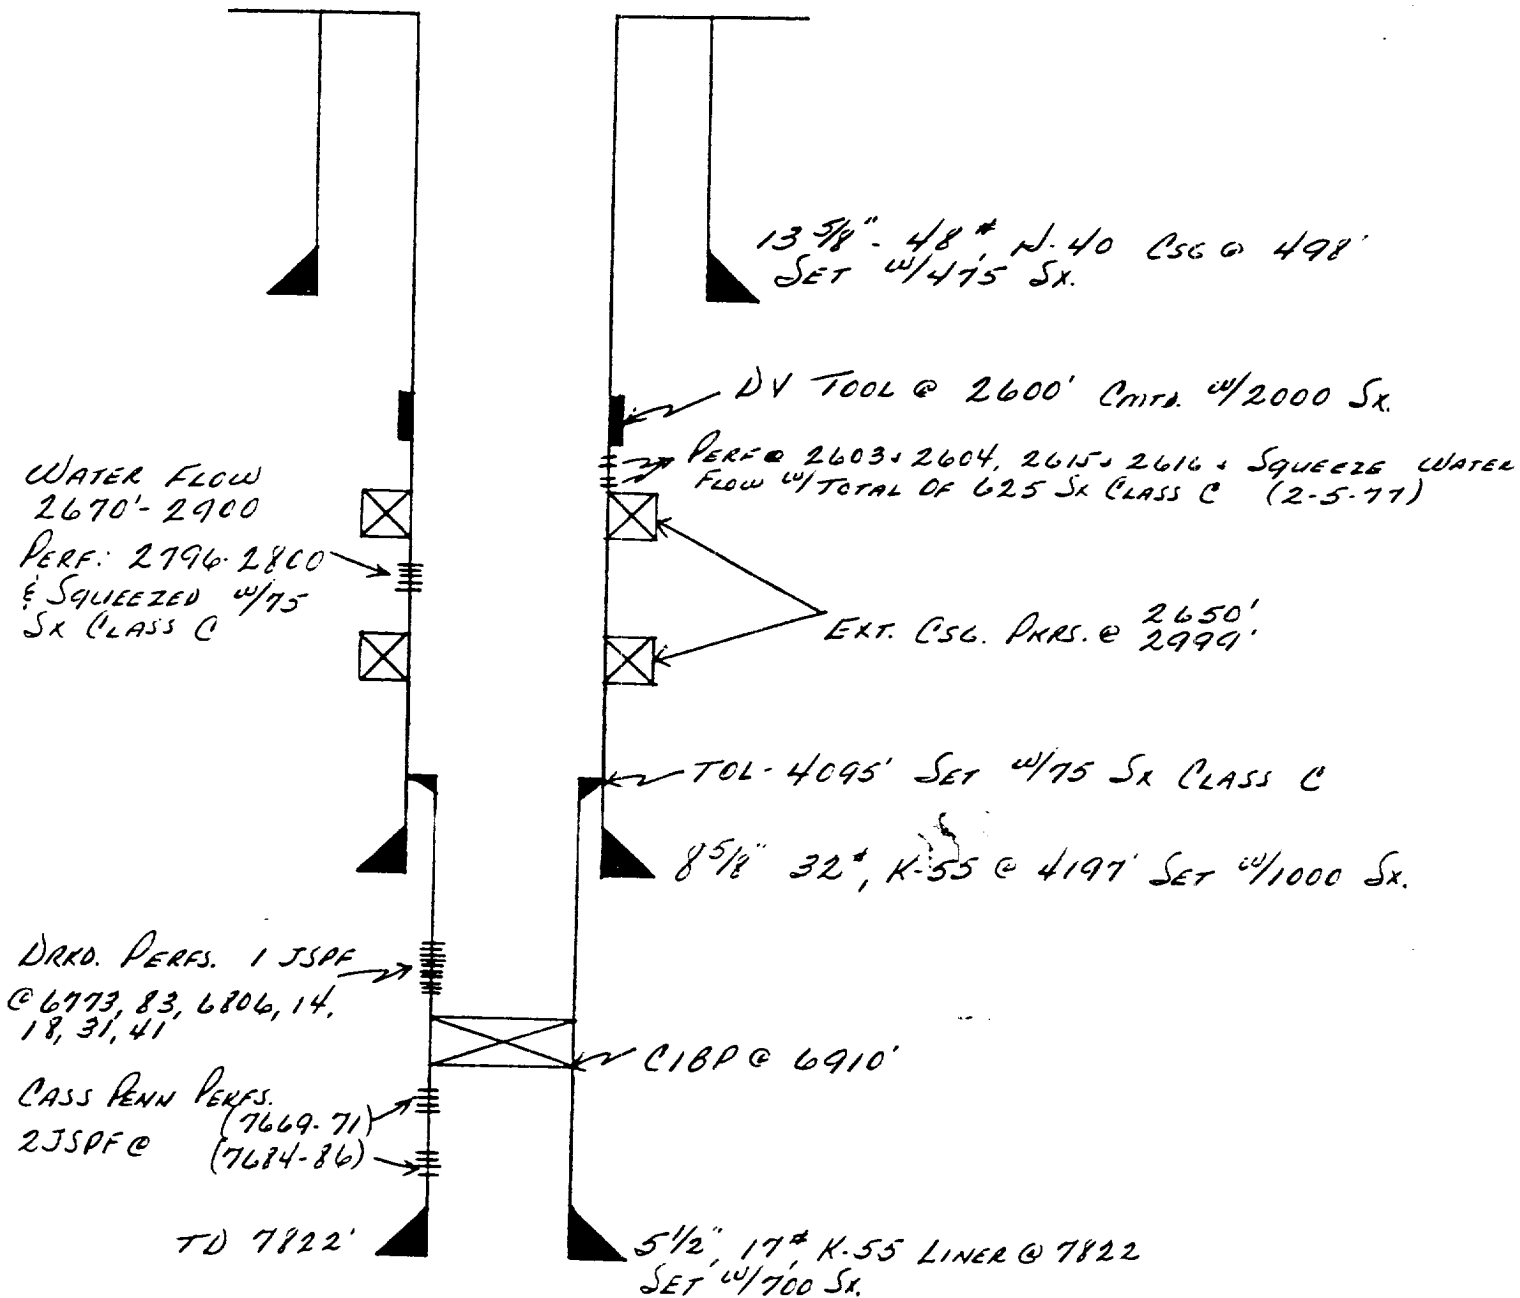 13 5/8" - 48#, H-40 CSG @ 498'
SET W/475 SX.
DV TOOL @ 2600' CMTD. W/2000 SX.
PERF @ 2603 & 2604, 2615 & 2616 & SQUEEZE WATER
FLOW W/TOTAL OF 625 SX CLASS C (2-5-77)
WATER FLOW
2670'-2900
PERF: 2796-2800
& SQUEEZED W/75
SX CLASS C
EXT. CSG. PKRS. @ 2650'
2999'
TOL - 4095' SET W/75 SX CLASS C
8 5/8" 32#, K-55 @ 4197' SET W/1000 SX.
DRKD. PERFS. 1 JSPF
@ 6773, 83, 6806, 14,
18, 31, 41
CIBP @ 6910'
CASS PENN PERFS.
(7669-71)
2JSPF @ (7684-86)
TD 7822'
5 1/2", 17#, K-55 LINER @ 7822
SET W/700 SX.